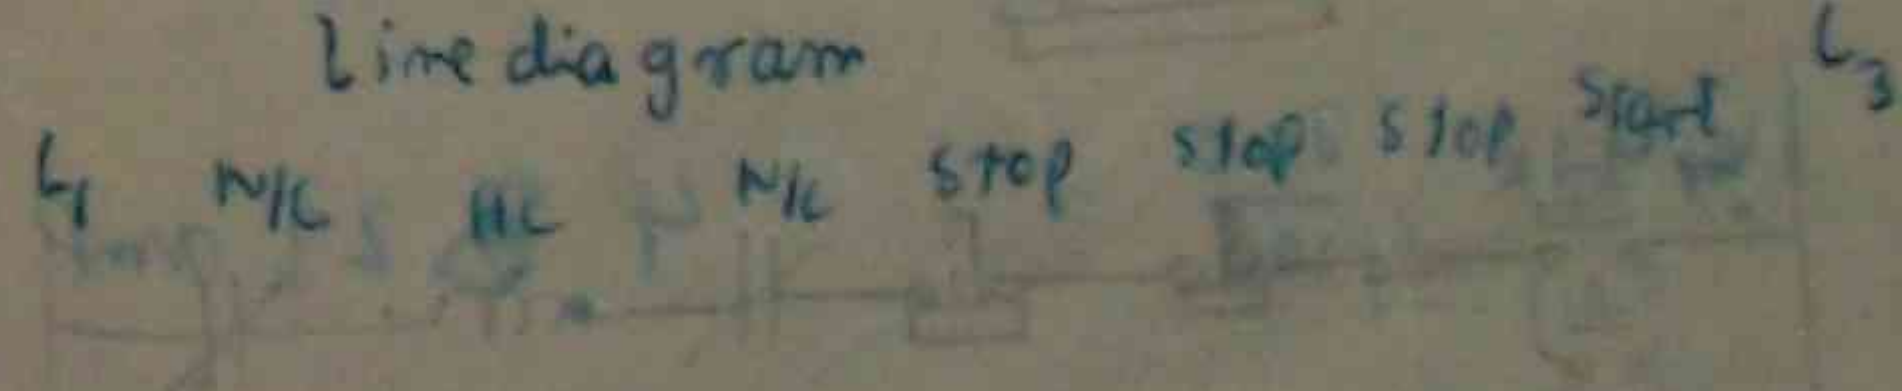 Line diagram
L1 N/C N/C Stop Stop Stop Start L3